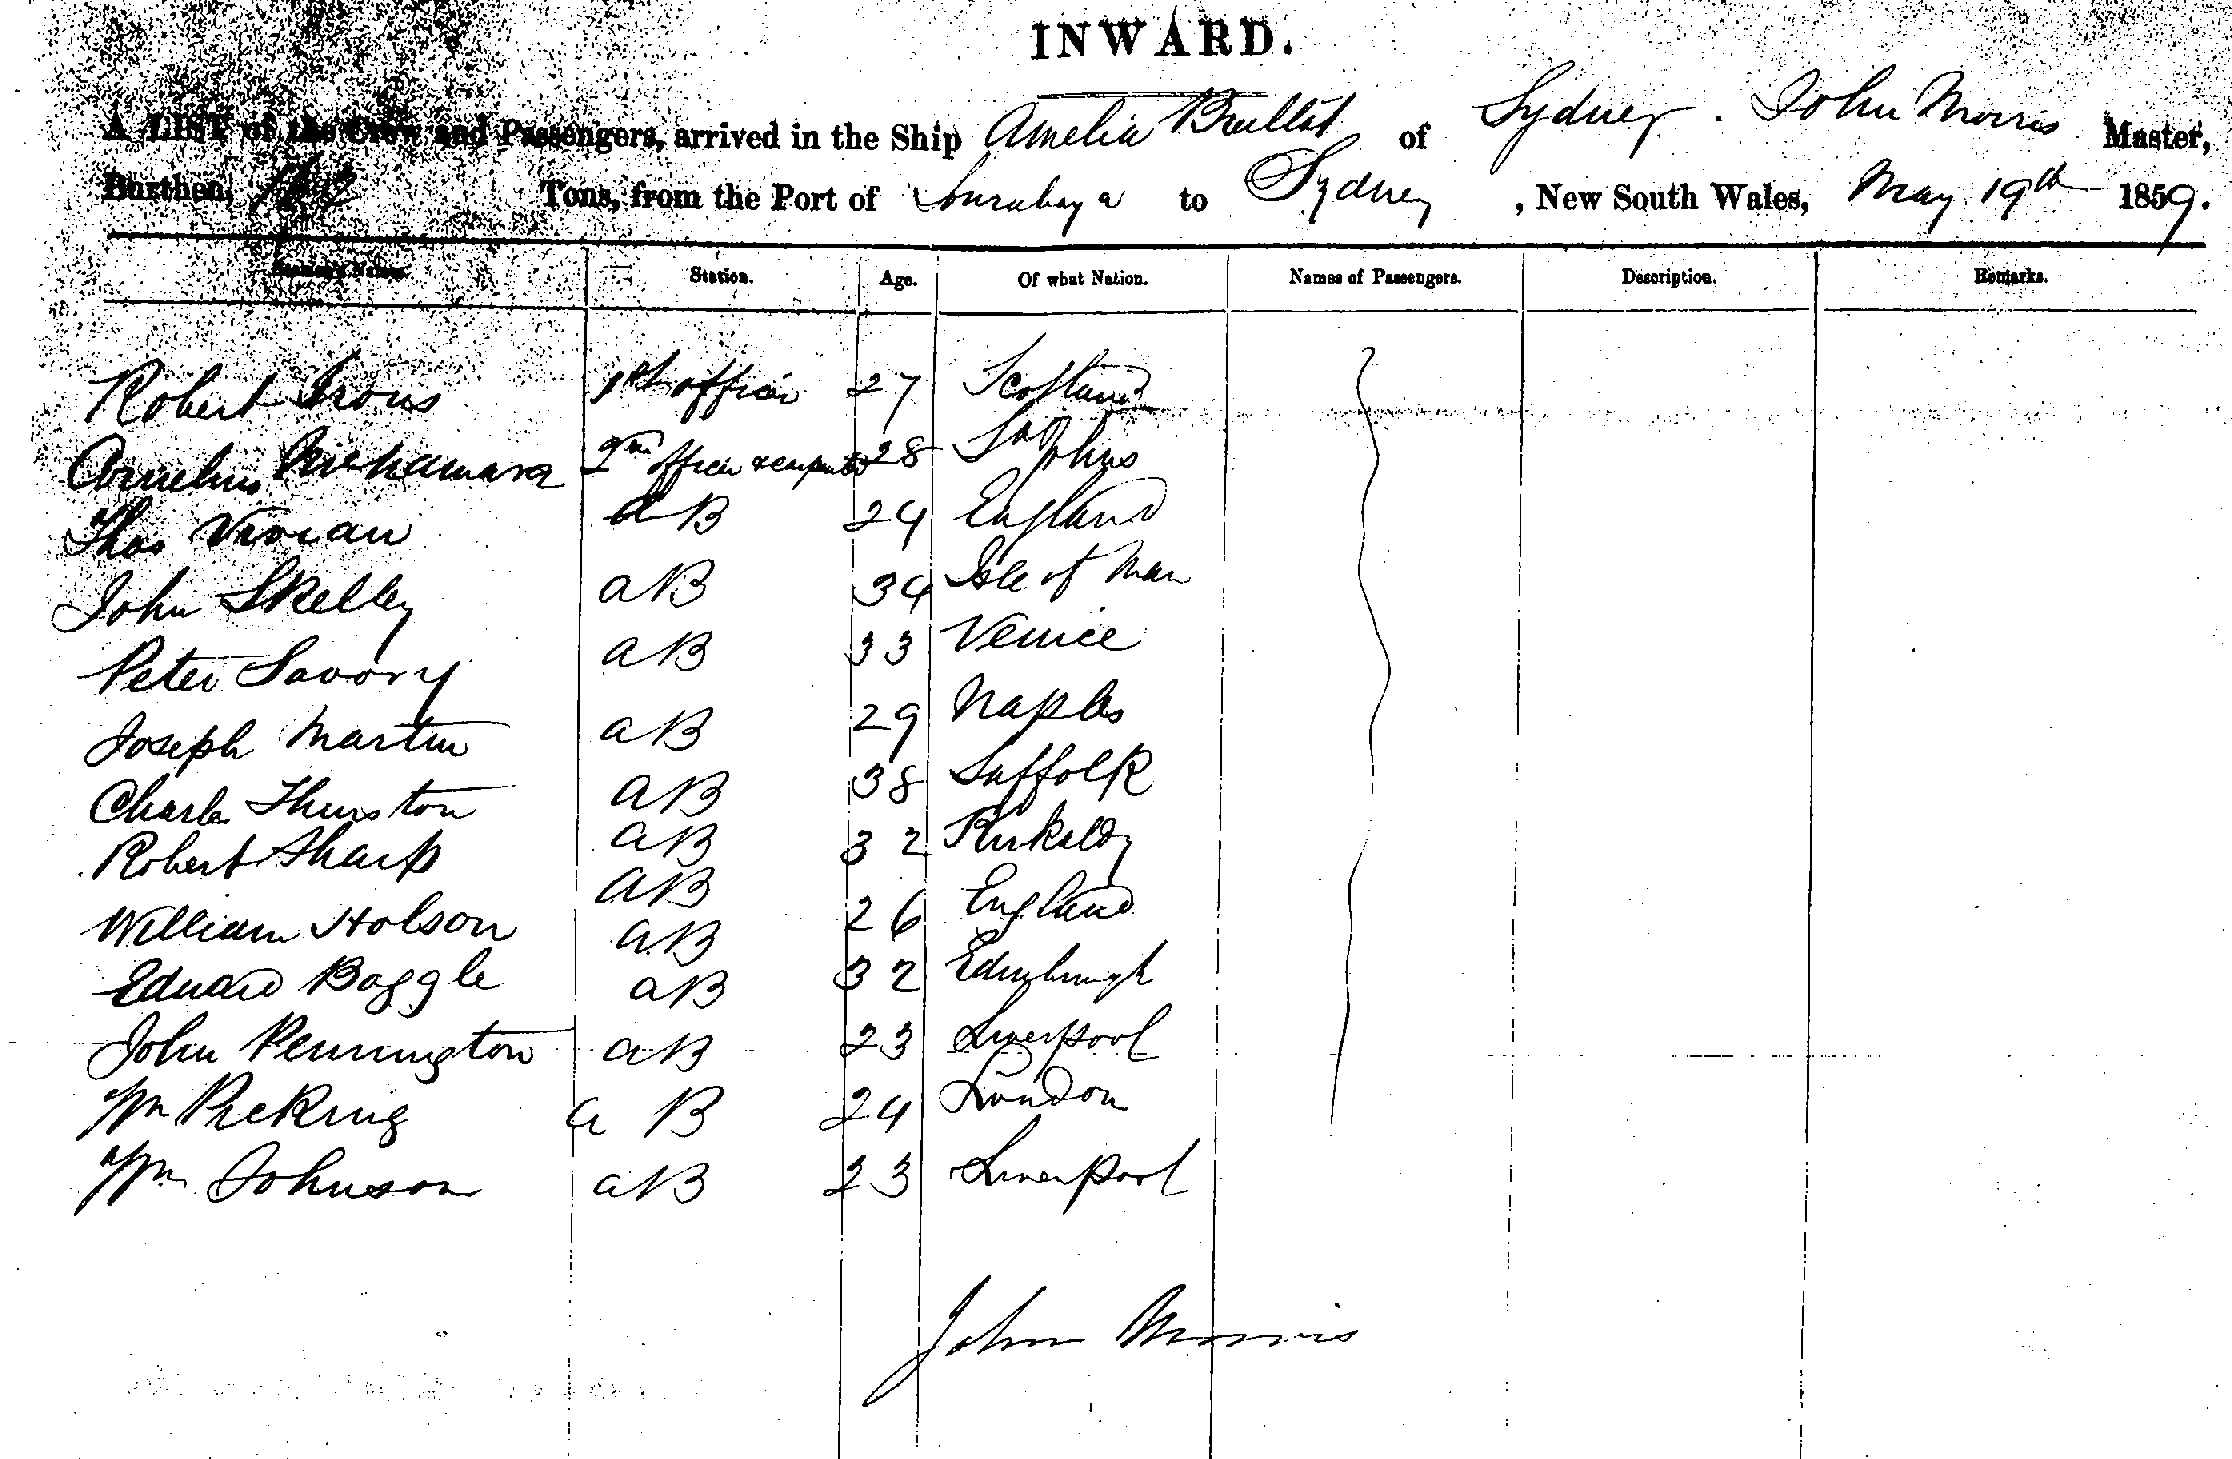 INWARD.
A LIST of the Crew and Passengers, arrived in the Ship Amelia of Sydney. John Morris Master,
Burthen, Tons, from the Port of Sourabaya to Sydney, New South Wales, May 19th 1859.
Seamen's Names. Station. Age. Of what Nation. Names of Passengers. Description. Remarks.
Robert Irons 1st officer 27 Scotland
Cornelius 2nd officer & 28 St Johns
Thos Vivian aB 24 England
John Skelley aB 34 Isle of Man
Peter Savory aB 33 Venice
Joseph Martin aB 29 Naples
Charles Thurston aB 38 Suffolk
Robert Sharp aB 32 Kirkaldy
William Holson aB 26 England
Edward Boggle aB 32 Edinburgh
John Pennington aB 23 Liverpool
Wm Pickring a B 24 London
Wm Johnson aB 23 Liverpool
John Morris